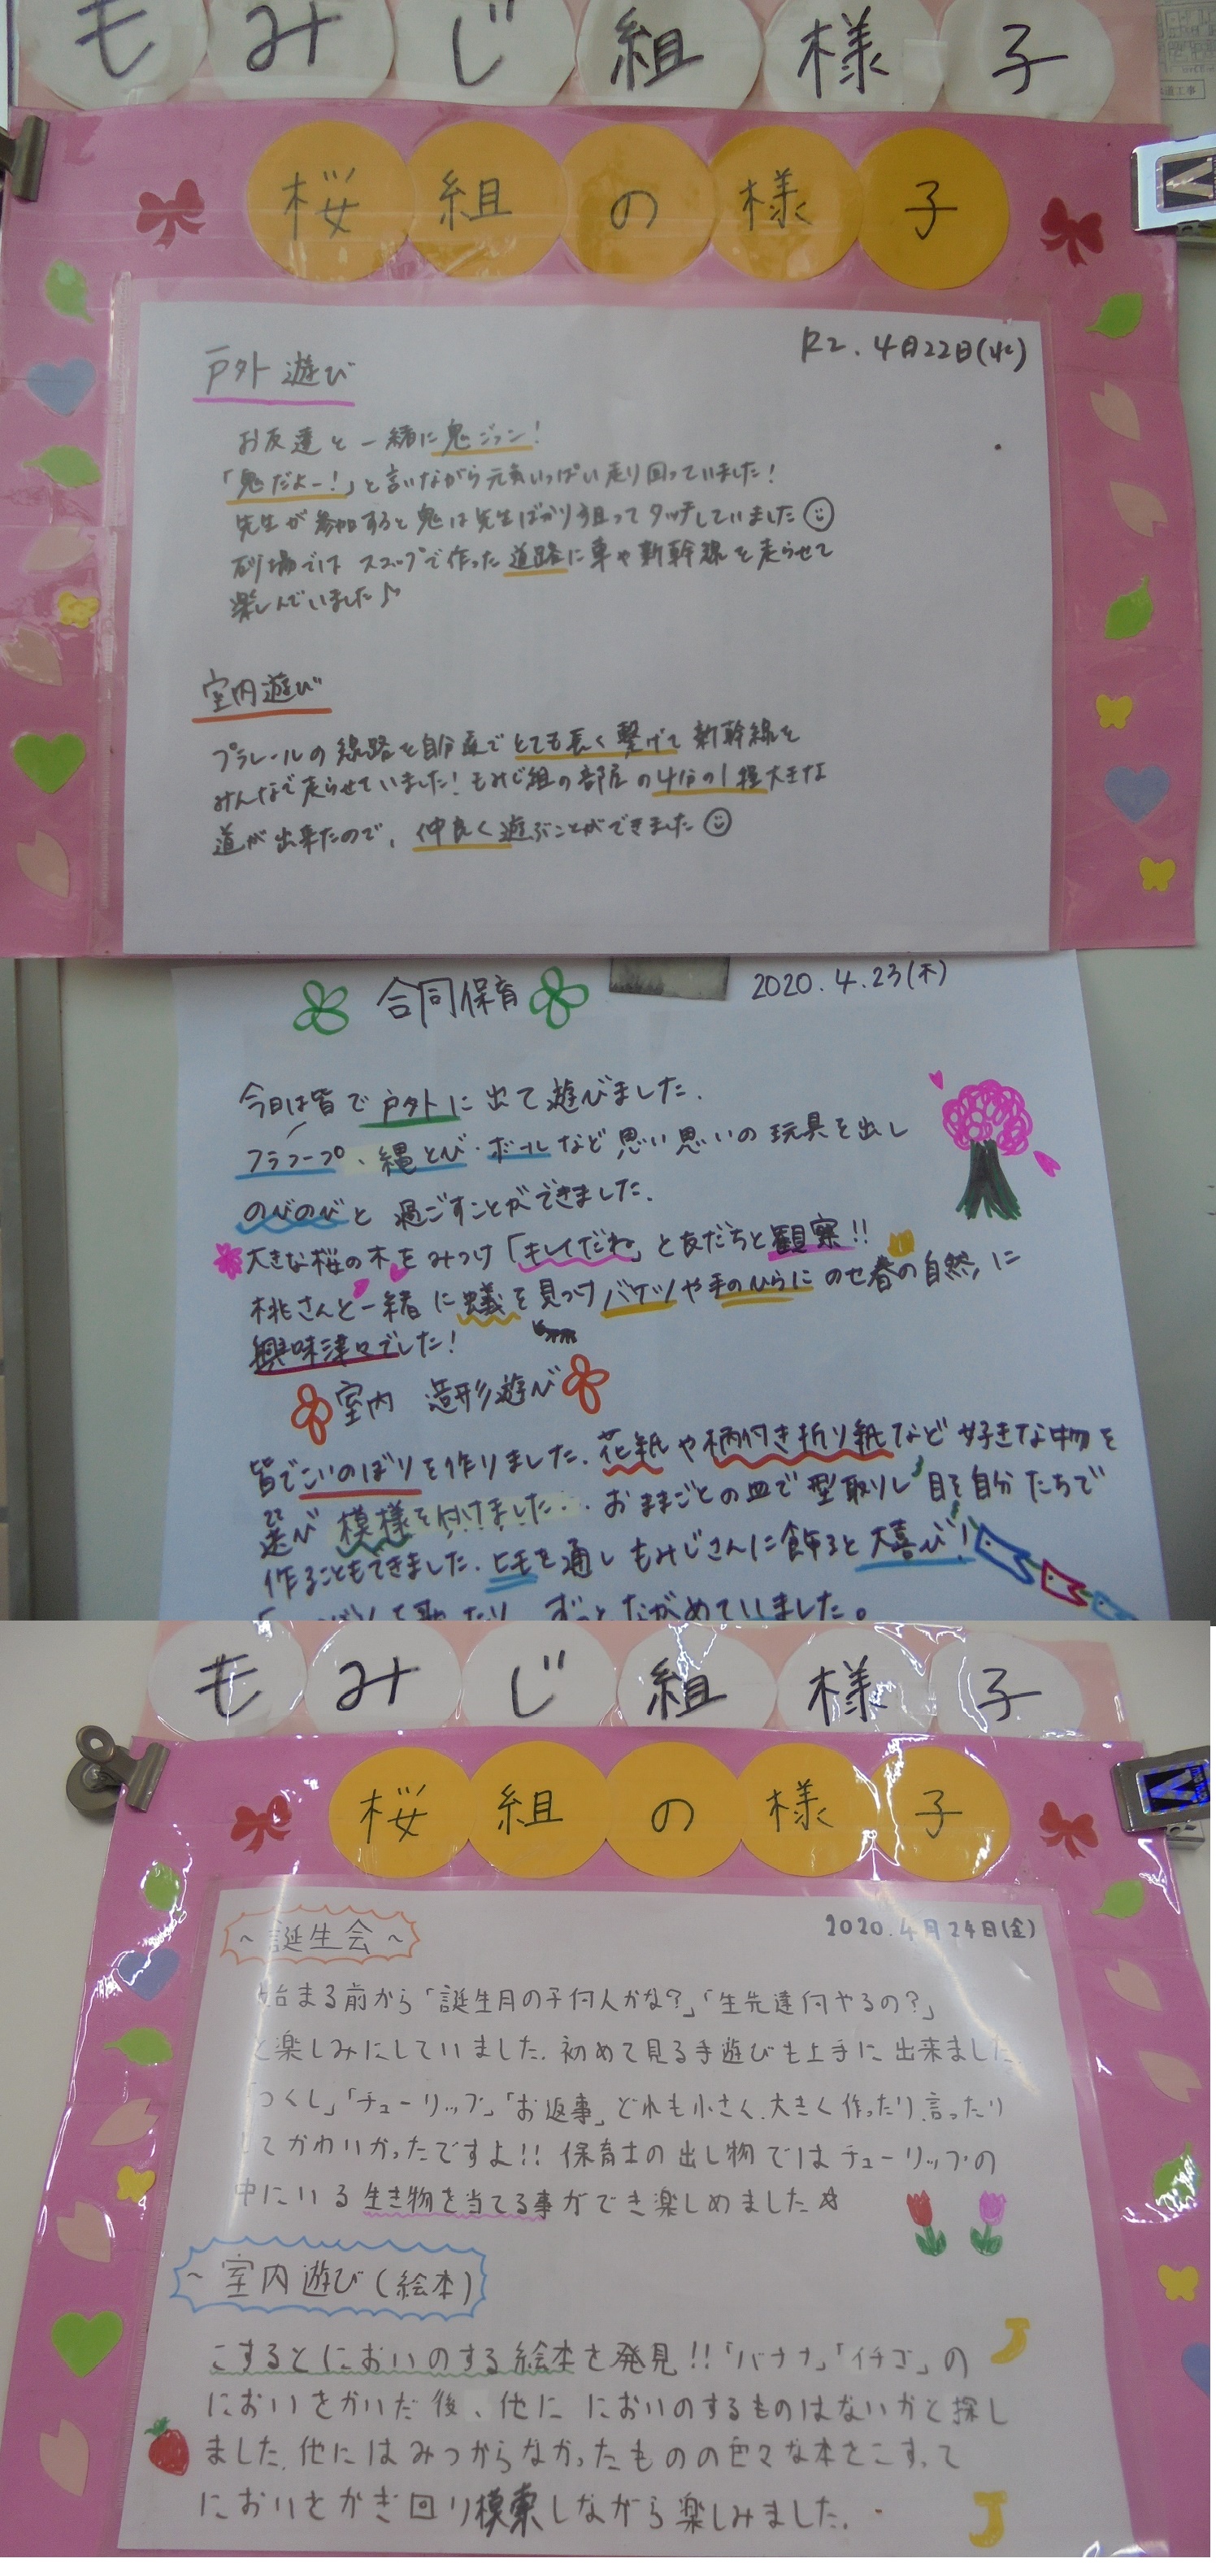 もみじ組様子
道工事
桜組の様子
R2. 4月22日(水)
戸外遊び
お友達と一緒に鬼ごっこ!
「鬼だよー!」と言いながら元気いっぱい走り回っていました!
先生が参加すると鬼は先生ばかり狙ってタッチしていました
砂場では スコップで作った道路に車や新幹線を走らせて
楽しんでいました♪
室内遊び
プラレールの線路を自分達でとても長く繋げて新幹線を
みんなで走らせていました!もみじ組の部屋の4分の1程大きな
道が出来たので、仲良く遊ぶことができました
合同保育
2020.4.23(木)
今日は皆で戸外に出て遊びました.
フラフープ、縄とび・ボールなど思い思いの玩具を出し
のびのびと過ごすことができました.
大きな桜の木をみつけ「キレイだね」と友だちと観察!!
桃さんと一緒に蟻を見つけバケツや手のひらにのせ春の自然に
興味津々でした!
室内 造形遊び
皆でこいのぼりを作りました.花紙や柄付き折り紙など好きな物を
選び模様を付けました...おままごとの皿で型取りし目を自分たちで
作ることもできました.ヒモを通しもみじさんに飾ると大喜び!
を歌ったり ずっとながめていました。
もみじ組様子
桜組の様子
2020.4月24日(金)
~誕生会~
始まる前から「誕生月の子何人かな?」「生先達何やるの?」
と楽しみにしていました.初めて見る手遊びも上手に出来ました
「つくし」「チューリップ」「お返事」どれも小さく.大きく作ったり.言ったり
してかわいかったですよ!!保育士の出し物ではチューリップの
中にいる生き物を当てる事ができ楽しめました☆
~室内遊び(絵本)
こするとにおいのする絵本を発見!!「バナナ」「イチゴ」の
においをかいだ後、他ににおいのするものはないかと探し
ました.他にはみつからなかったものの色々な本をこすって
においをかぎ回り模索しながら楽しみました.